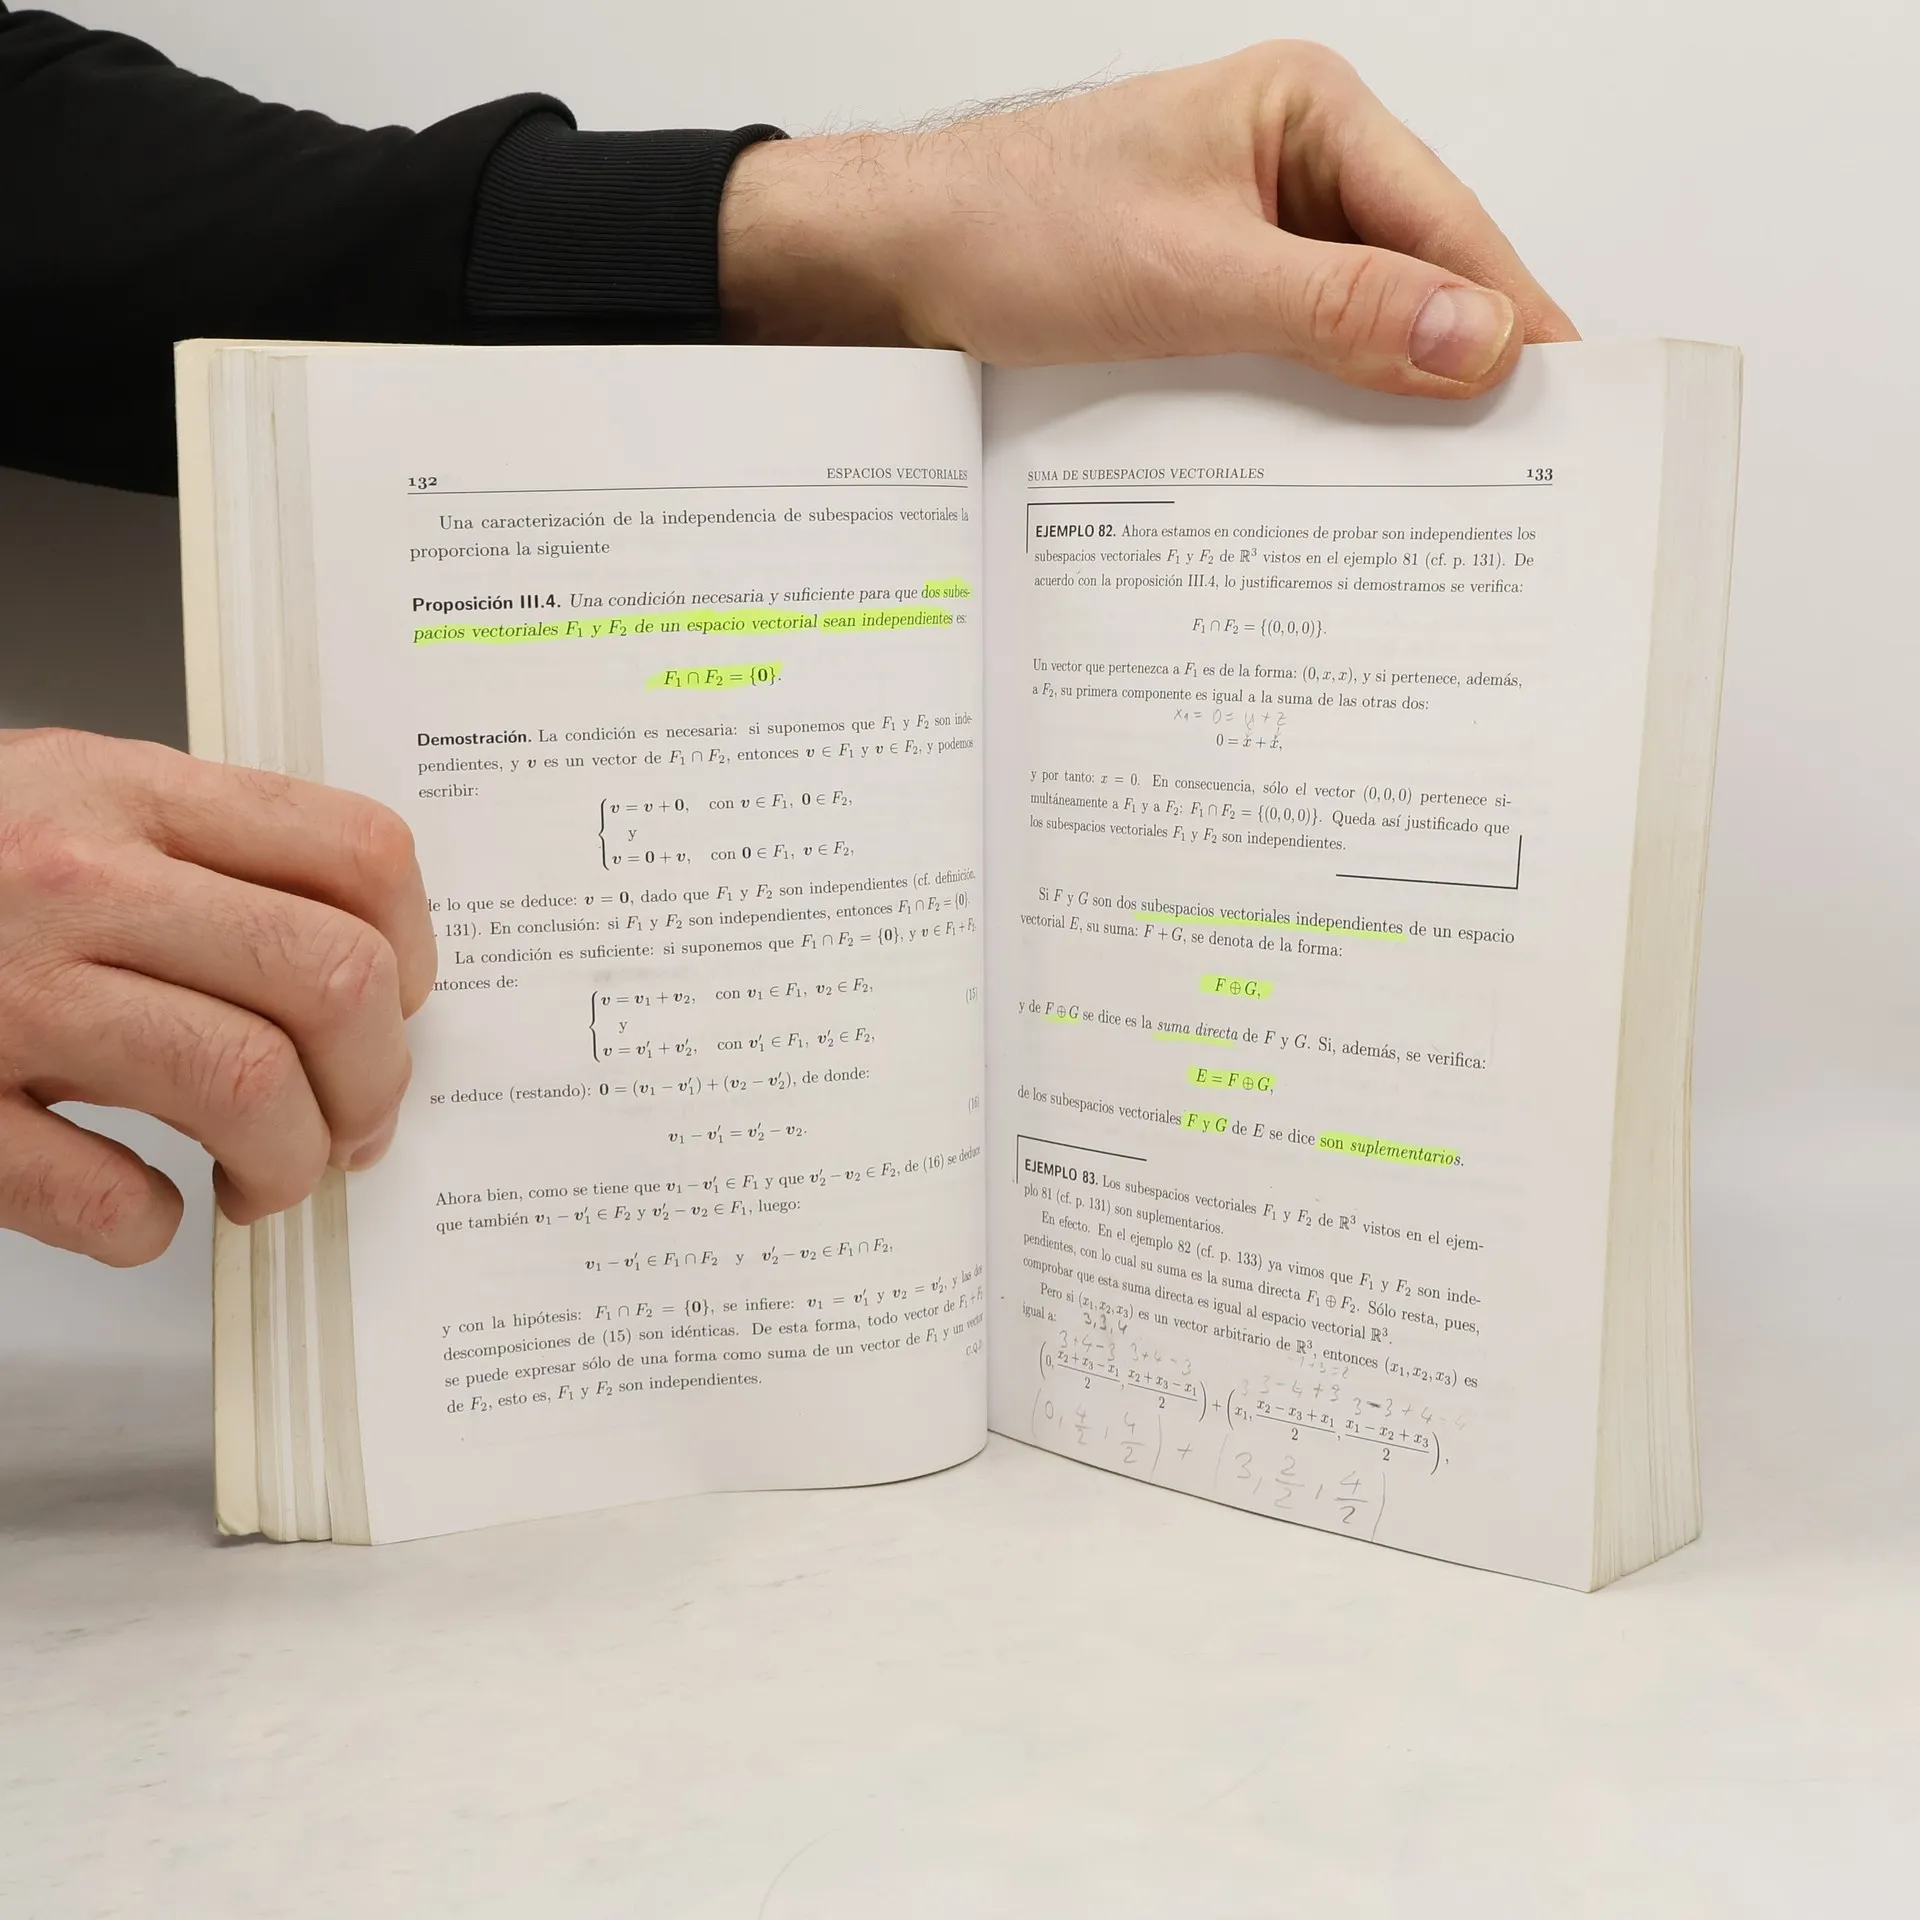 132
ESPACIOS VECTORIALES
Una caracterización de la independencia de subespacios vectoriales la
proporciona la siguiente
Proposición III.4. Una condición necesaria y suficiente para que dos subes-
pacios vectoriales F₁ y F₂ de un espacio vectorial sean independientes es:
F₁ ∩ F₂ = {0}.
Demostración. La condición es necesaria: si suponemos que F₁ y F₂ son inde-
pendientes, y v es un vector de F₁ ∩ F₂, entonces v ∈ F₁ y v ∈ F₂, y podemos
escribir:
v = v + 0, con v ∈ F₁, 0 ∈ F₂,
y
v = 0 + v, con 0 ∈ F₁, v ∈ F₂,
de lo que se deduce: v = 0, dado que F₁ y F₂ son independientes (cf. definición,
. 131). En conclusión: si F₁ y F₂ son independientes, entonces F₁ ∩ F₂ = {0}.
La condición es suficiente: si suponemos que F₁ ∩ F₂ = {0}, y v ∈ F₁ + F₂,
ntonces de:
v = v₁ + v₂, con v₁ ∈ F₁, v₂ ∈ F₂,
y
(15)
v = v′₁ + v′₂, con v′₁ ∈ F₁, v′₂ ∈ F₂,
se deduce (restando): 0 = (v₁ − v′₁) + (v₂ − v′₂), de donde:
v₁ − v′₁ = v′₂ − v₂.
(16)
Ahora bien, como se tiene que v₁ − v′₁ ∈ F₁ y que v′₂ − v₂ ∈ F₂, de (16) se deduce
que también v₁ − v′₁ ∈ F₂ y v′₂ − v₂ ∈ F₁, luego:
v₁ − v′₁ ∈ F₁ ∩ F₂ y v′₂ − v₂ ∈ F₁ ∩ F₂,
y con la hipótesis: F₁ ∩ F₂ = {0}, se infiere: v₁ = v′₁ y v₂ = v′₂, y las dos
descomposiciones de (15) son idénticas. De esta forma, todo vector de F₁ + F₂
se puede expresar sólo de una forma como suma de un vector de F₁ y un vector
de F₂, esto es, F₁ y F₂ son independientes.
C.Q.D.
SUMA DE SUBESPACIOS VECTORIALES
133
EJEMPLO 82. Ahora estamos en condiciones de probar son independientes los
subespacios vectoriales F₁ y F₂ de ℝ³ vistos en el ejemplo 81 (cf. p. 131). De
acuerdo con la proposición III.4, lo justificaremos si demostramos se verifica:
F₁ ∩ F₂ = {(0, 0, 0)}.
Un vector que pertenezca a F₁ es de la forma: (0, x, x), y si pertenece, además,
a F₂, su primera componente es igual a la suma de las otras dos:
x₁ = 0 = y + z
0 = x + x,
y por tanto: x = 0. En consecuencia, sólo el vector (0, 0, 0) pertenece si-
multáneamente a F₁ y a F₂: F₁ ∩ F₂ = {(0, 0, 0)}. Queda así justificado que
los subespacios vectoriales F₁ y F₂ son independientes.
Si F y G son dos subespacios vectoriales independientes de un espacio
vectorial E, su suma: F + G, se denota de la forma:
F ⊕ G,
y de F ⊕ G se dice es la suma directa de F y G. Si, además, se verifica:
E = F ⊕ G,
de los subespacios vectoriales F y G de E se dice son suplementarios.
EJEMPLO 83. Los subespacios vectoriales F₁ y F₂ de ℝ³ vistos en el ejem-
plo 81 (cf. p. 131) son suplementarios.
En efecto. En el ejemplo 82 (cf. p. 133) ya vimos que F₁ y F₂ son inde-
pendientes, con lo cual su suma es la suma directa F₁ ⊕ F₂. Sólo resta, pues,
comprobar que esta suma directa es igual al espacio vectorial ℝ³.
Pero si (x₁, x₂, x₃) es un vector arbitrario de ℝ³, entonces (x₁, x₂, x₃) es
igual a:
3, 3, 4
3+4−3 3+4−3 3−4+3 3−3+4=4
(0, (x₂ + x₃ − x₁)/2, (x₂ + x₃ − x₁)/2) + (x₁, (x₂ − x₃ + x₁)/2, (x₁ − x₂ + x₃)/2),
(0, 4/2, 4/2) + (3, 2/2, 4/2)